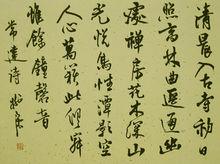 清晨入古寺初日
照高林曲逕通幽
處禪房花木深山
光悅鳥性潭影空
人心萬籟此俱寂
惟餘鐘磬音
常建詩